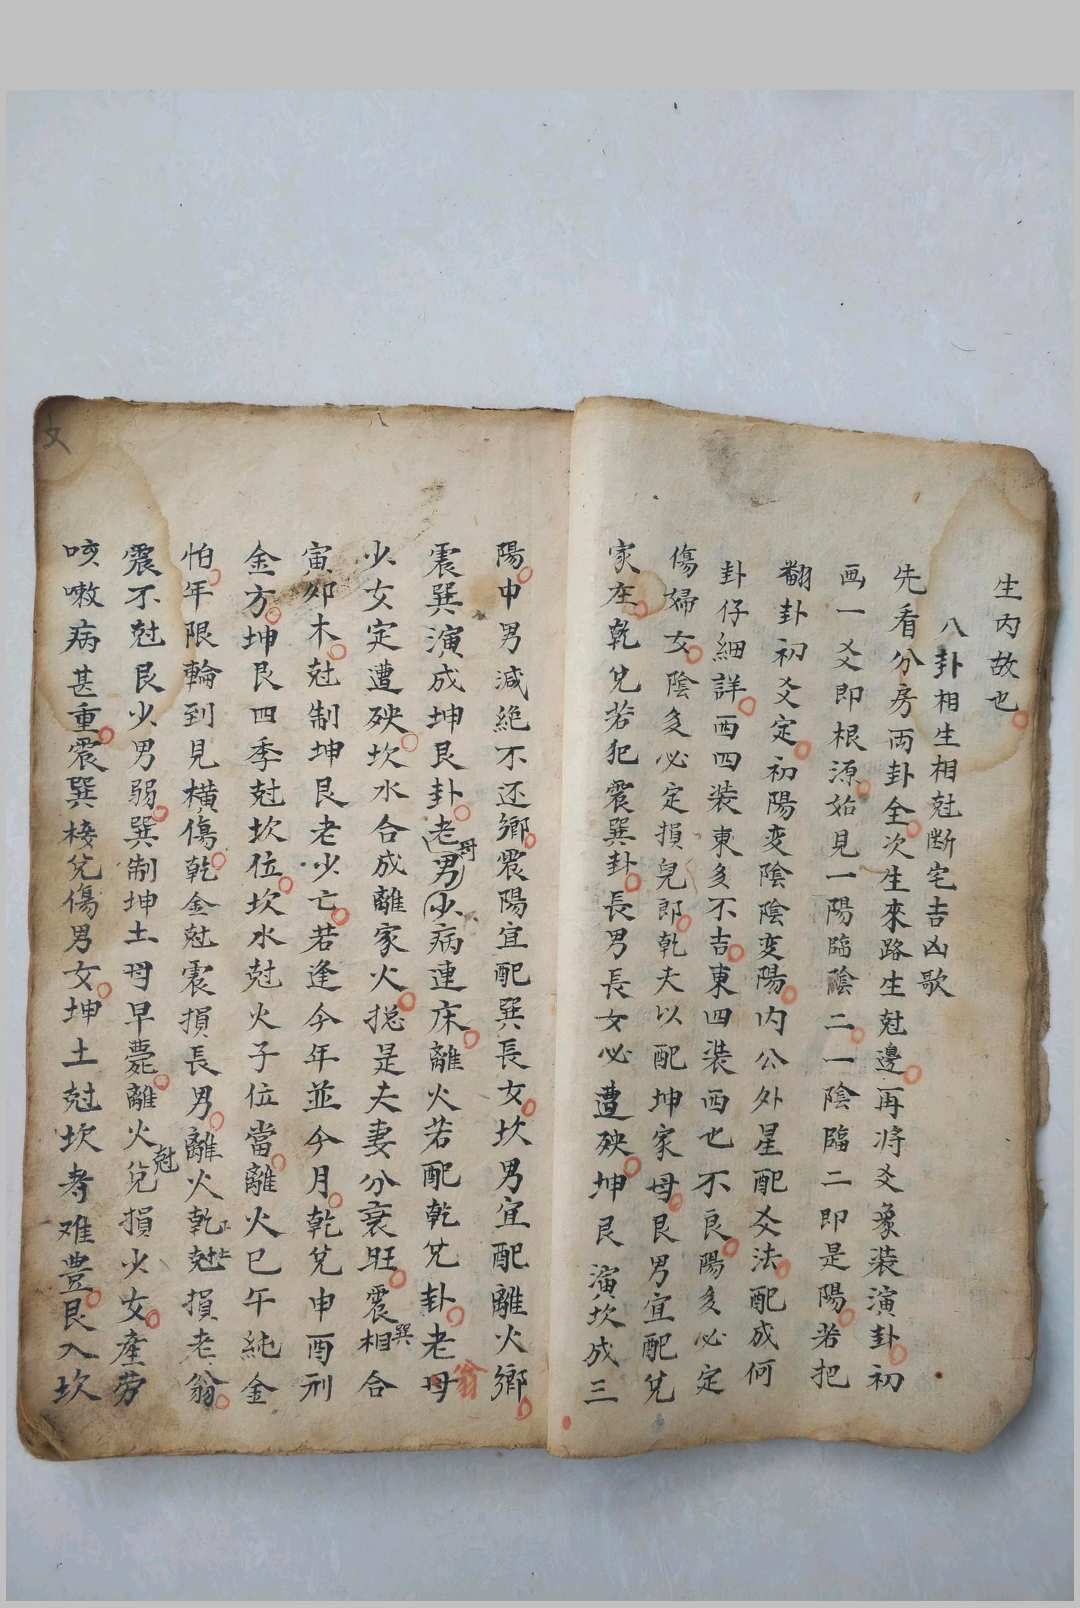 生内故也
八卦相生相尅断宅吉凶歌
先看分房两卦全次生來路生尅邊再将爻象装演卦初
画一爻即根源始見一陽臨陰二一陰臨二即是陽若把
翻卦初爻定初陽変陰陰変陽内公外星配爻法配成何
卦仔細詳西四装東多不吉東四装西也不良陽多必定
傷婦女陰多必定損兒郎乾夫以配坤家母艮男宜配兌
家庄乾兌若犯震巽卦長男長女必遭殃坤艮演坎成三
陽中男減絶不还鄉震陽宜配巽長女坎男宜配離火鄉
震巽演成坤艮卦老母男少病連床離火若配乾兌卦老母翁
少女定遭殃坎水合成離家火摠是夫妻分衰旺震巽相合
寅夘木尅制坤艮老少亡若逢今年並今月乾兌申酉刑
金方坤艮四季尅坎位坎水尅火子位當離火巳午純金
怕年限輪到見橫傷乾金尅震損長男離火乾尅損老翁
震木尅艮少男弱巽制坤土母早薨離火尅兌損少女産劳
咳嗽病甚重震巽棱兌傷男女坤土尅坎寿难豊艮入坎
文